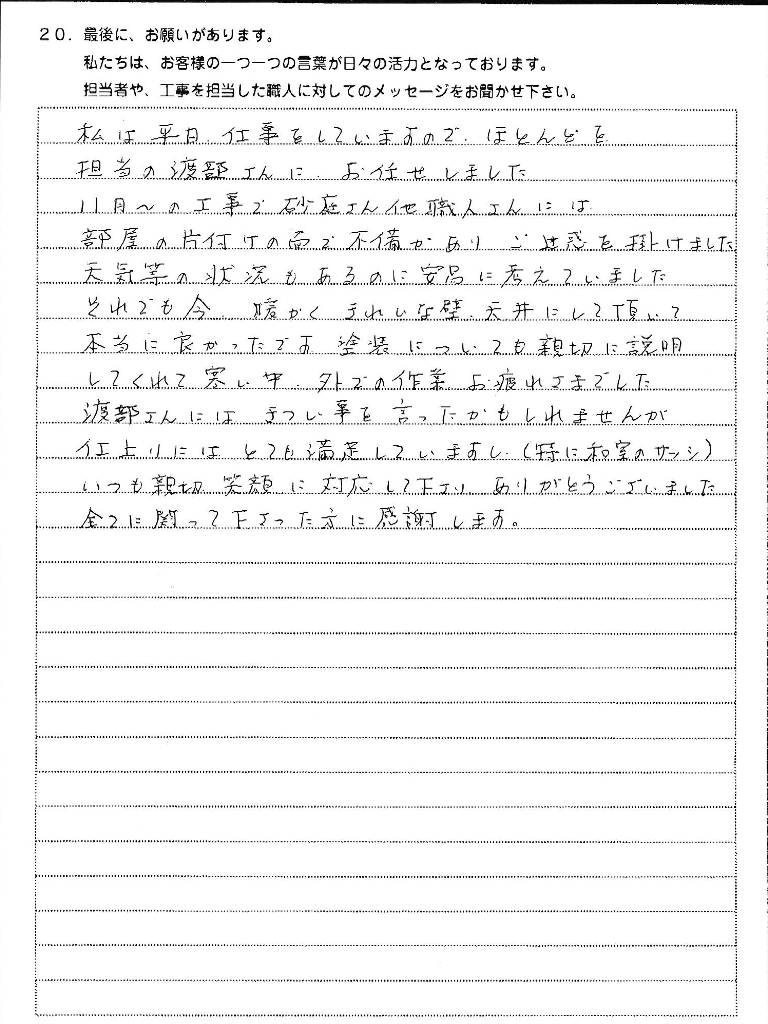 20. 最後に、お願いがあります。
私たちは、お客様の一つ一つの言葉が日々の活力となっております。
担当者や、工事を担当した職人に対してのメッセージをお聞かせ下さい。
私は平日、仕事をしていますので、ほとんどを
担当の渡部さんに、お任せしました
11月～の工事で砂庭さん他職人さんには
部屋の片付けの面で不備があり ご迷惑を掛けました
天気等の状況もあるのに安易に考えていました
それでも今、暖かく きれいな壁、天井にして頂いて
本当に良かったです 塗装についても親切に説明
してくれて寒い中、外での作業 お疲れさまでした
渡部さんには きつい事を言ったかもしれませんが
仕上りには とても満足していますし、(特に和室のサッシ)
いつも親切 笑顔に対応して下さり ありがとうございました
全てに関って下さった方に感謝します。